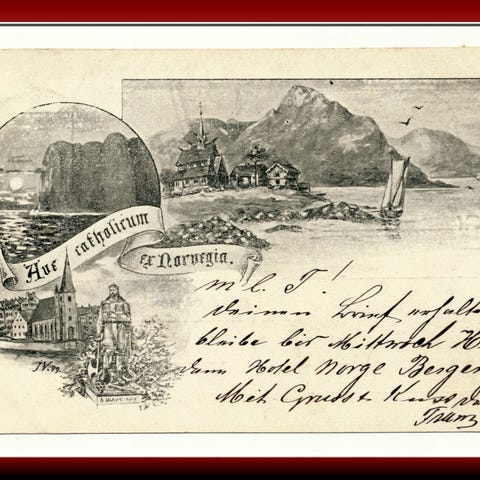 Ave catholicum
ex Norvegia.
m. l. F!
deinen Brief erhalte
bleibe bis Mittwoch H
dann Hotel Norge Bergen
Mit Gruss & Kuss
Franz